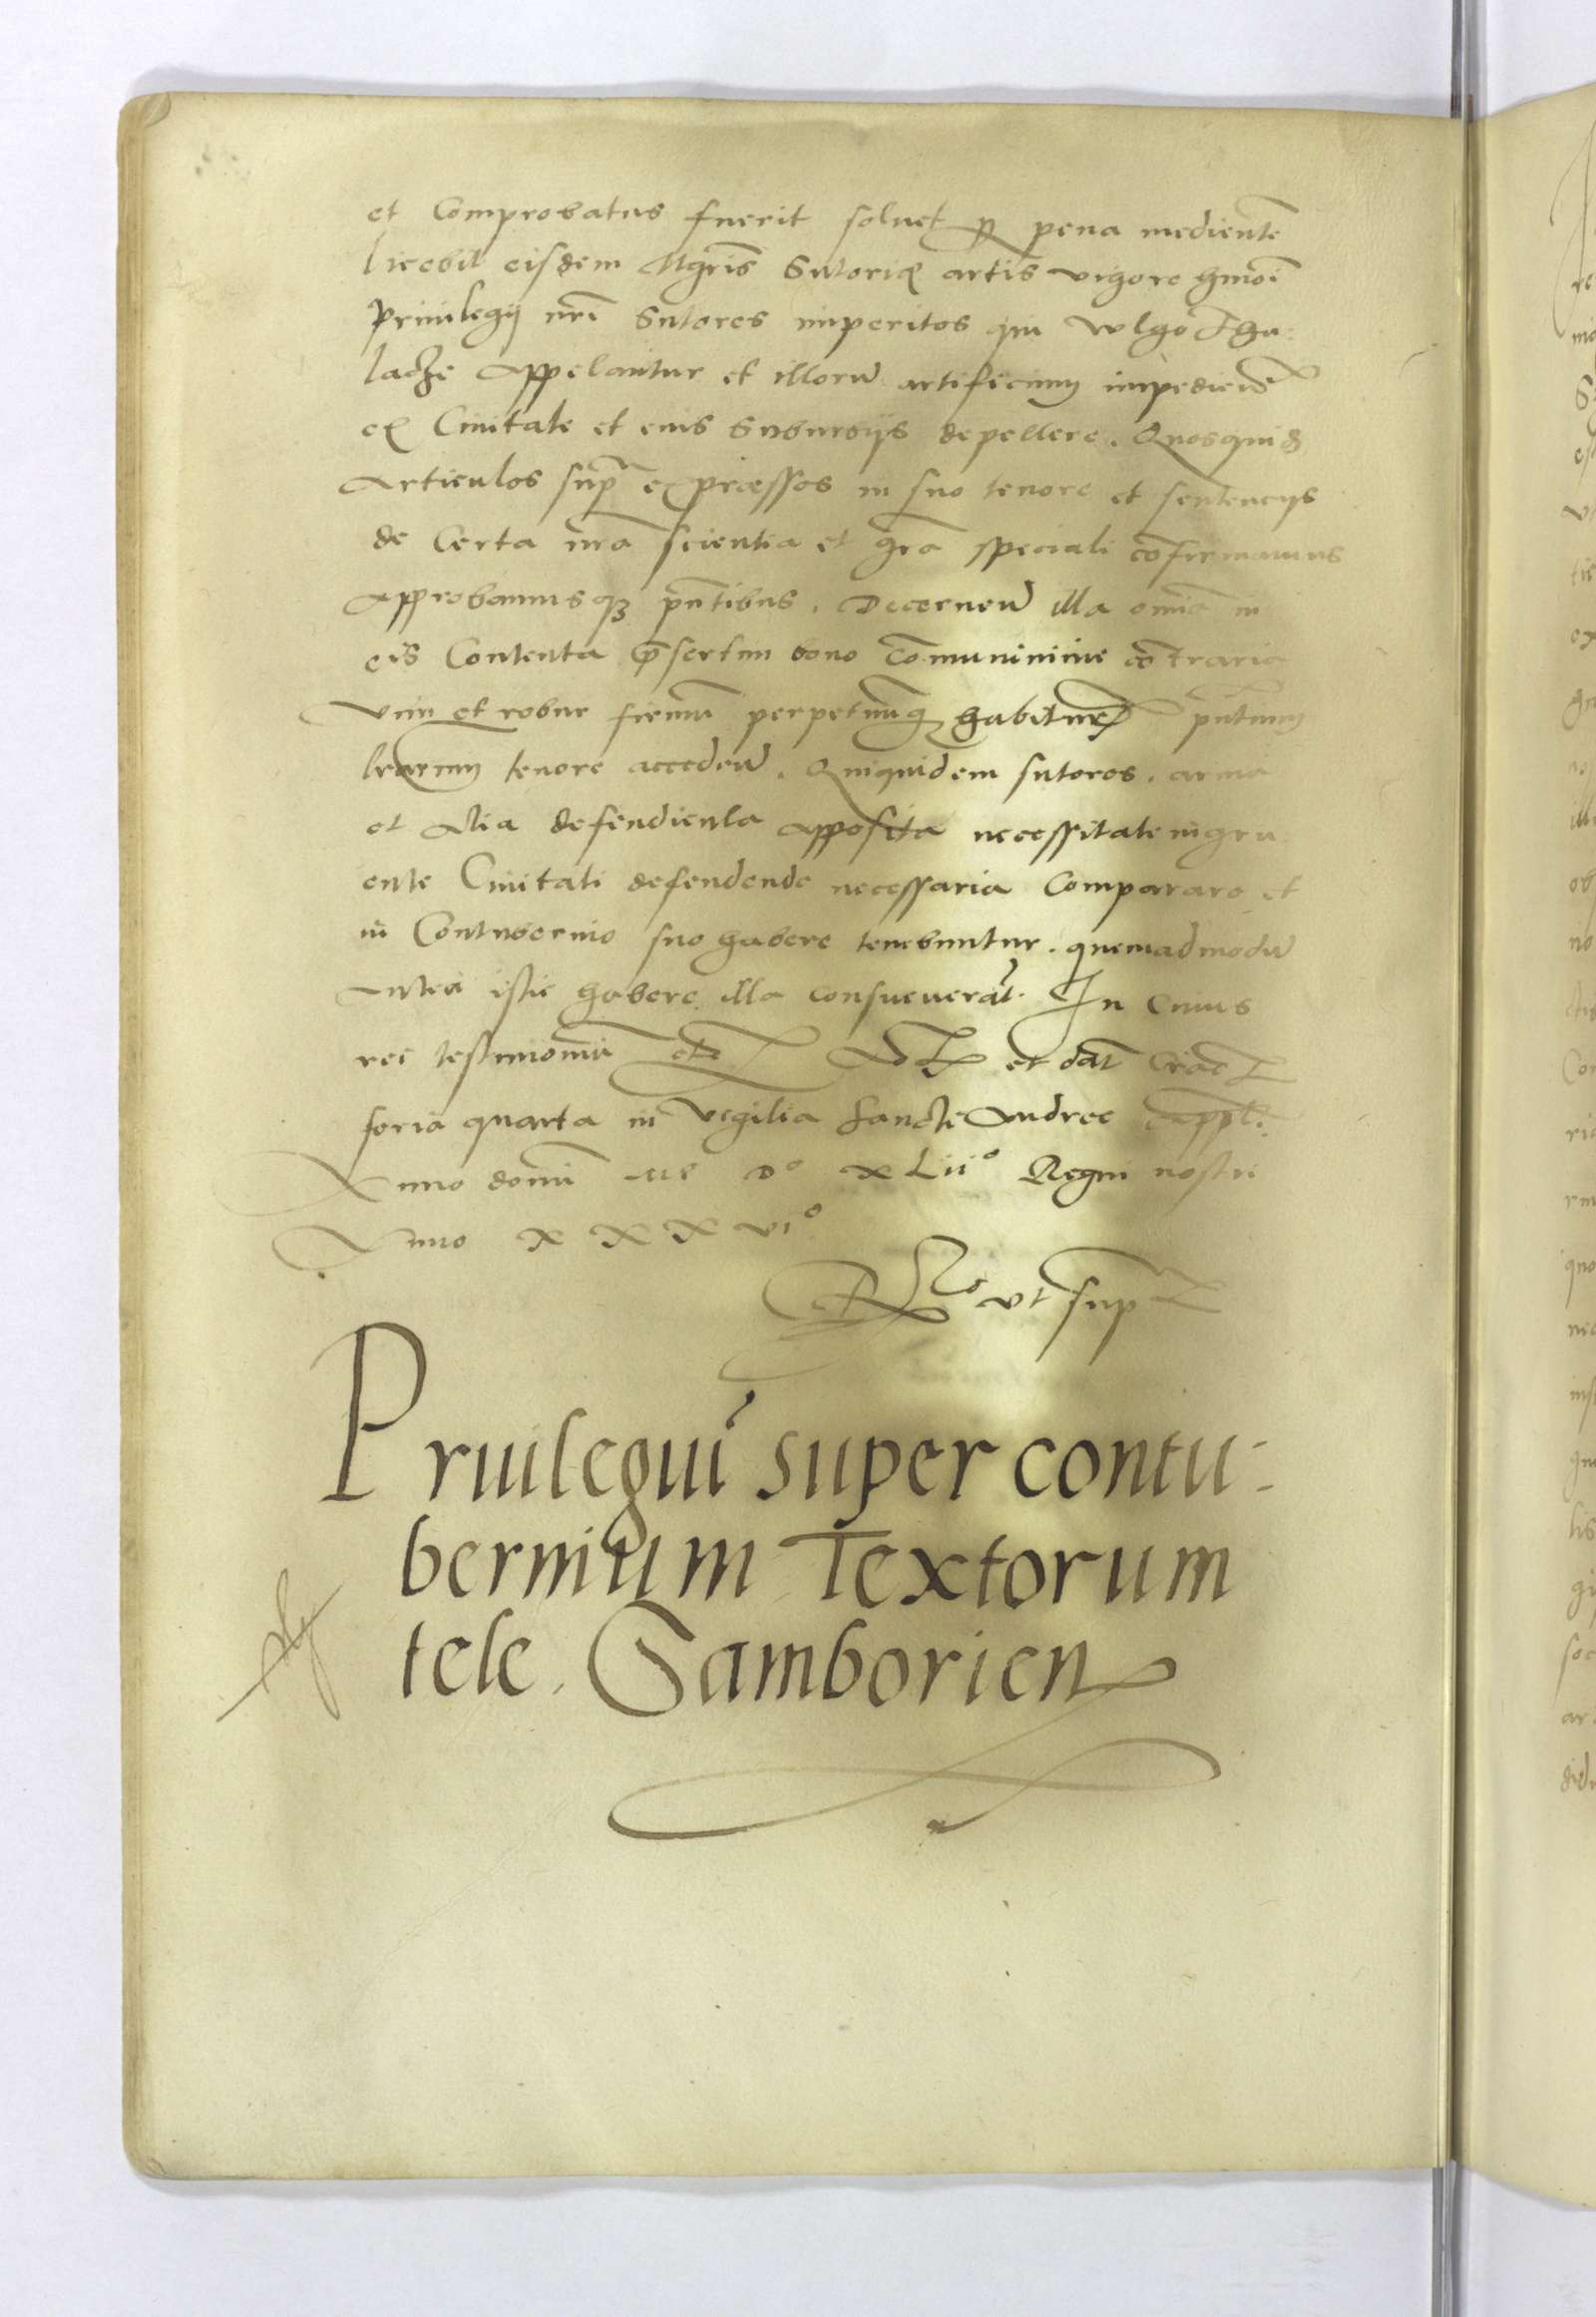 et Comprobatus fuerit soluet p pena medientē
licebit eisdem Mgris̄ Sutoriæ artis vigore hmōi
Priuilegij nr̄i Sutores imperitos qui wlgo Thu-
lacze appelantur et illorū artificium impedieñ
ex Ciuitate et eius Suburbijs depellere. Quosquid
Articulos supra expræssos in suo tenore et sentencijs
de Certa nr̄a scientia et gr̄a speciali cōfirmamus
approbamusqʒ pn̄tibus. Decerneñ illa omīa in
eis Contenta p̄sertim bono cōmuni minime cōtraria
Vim et robur firmū perpetuūqʒ habitur pn̄tium
lr̄arum tenore accedeñ. Quiquidem sutores. arma
et Alia defendicula apposita necessitate ingru
ente Ciuitati defendende necessaria Comparare et
in Contubernio suo habere tenebuntur. quemadmodū
Antea istic habere illa consueuerāt. In Cuius
rei testimoniū etc Act et dat̄ Crac
feria quarta in Vigilia Sancte Andree Appl̄i
Anno domī Mº Dº xLiiº Regni nostri
Anno x x x viº
Rlo vt supra
Priuilegiū super contu-
bernium Textorum
tele. Samborien